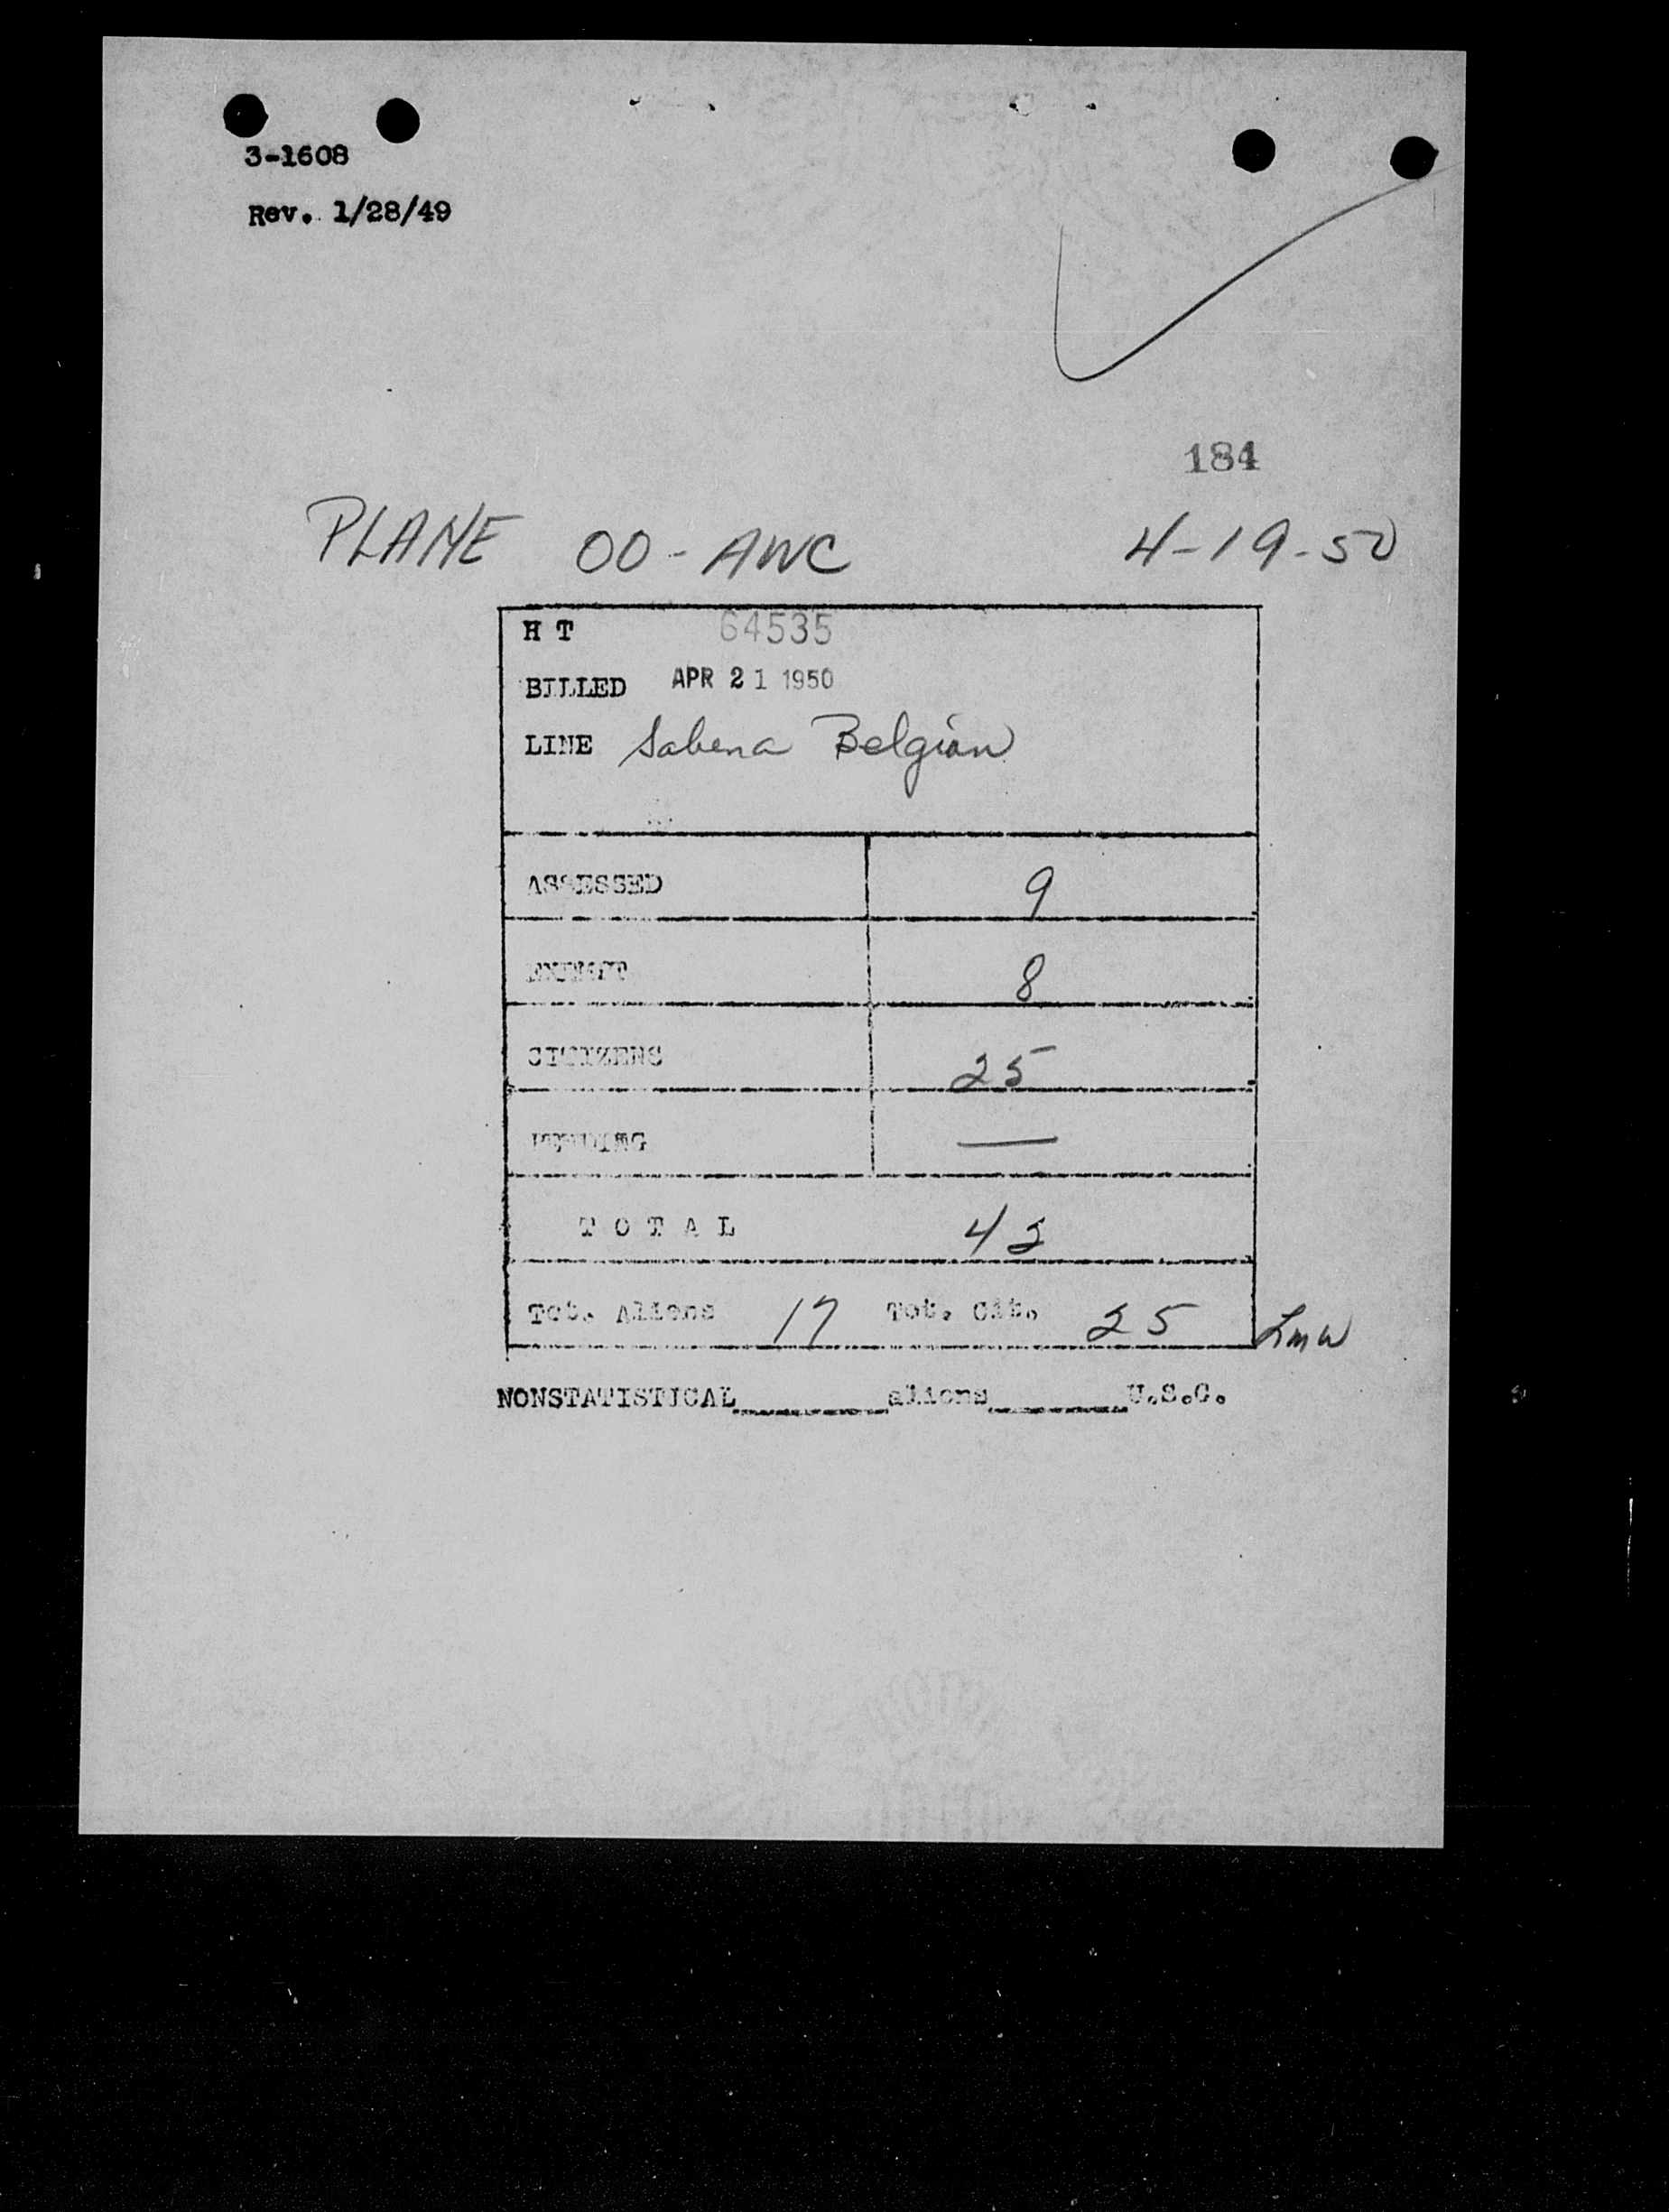 3-1608
Rev. 1/28/49
184
PLANE OO-AWC 4-19-50
H T 64535
BILLED APR 21 1950
LINE Sabena Belgian
ASSESSED 9
EXEMPT 8
CITIZENS 25
PENDING —
TOTAL 42
Tot. Aliens 17 Tot. Cit. 25 LMW
NONSTATISTICAL________aliens________U.S.C.